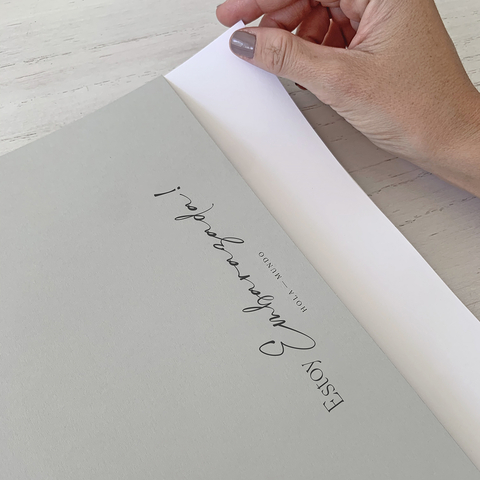 Estoy Embarazada!
HOLA — MUNDO